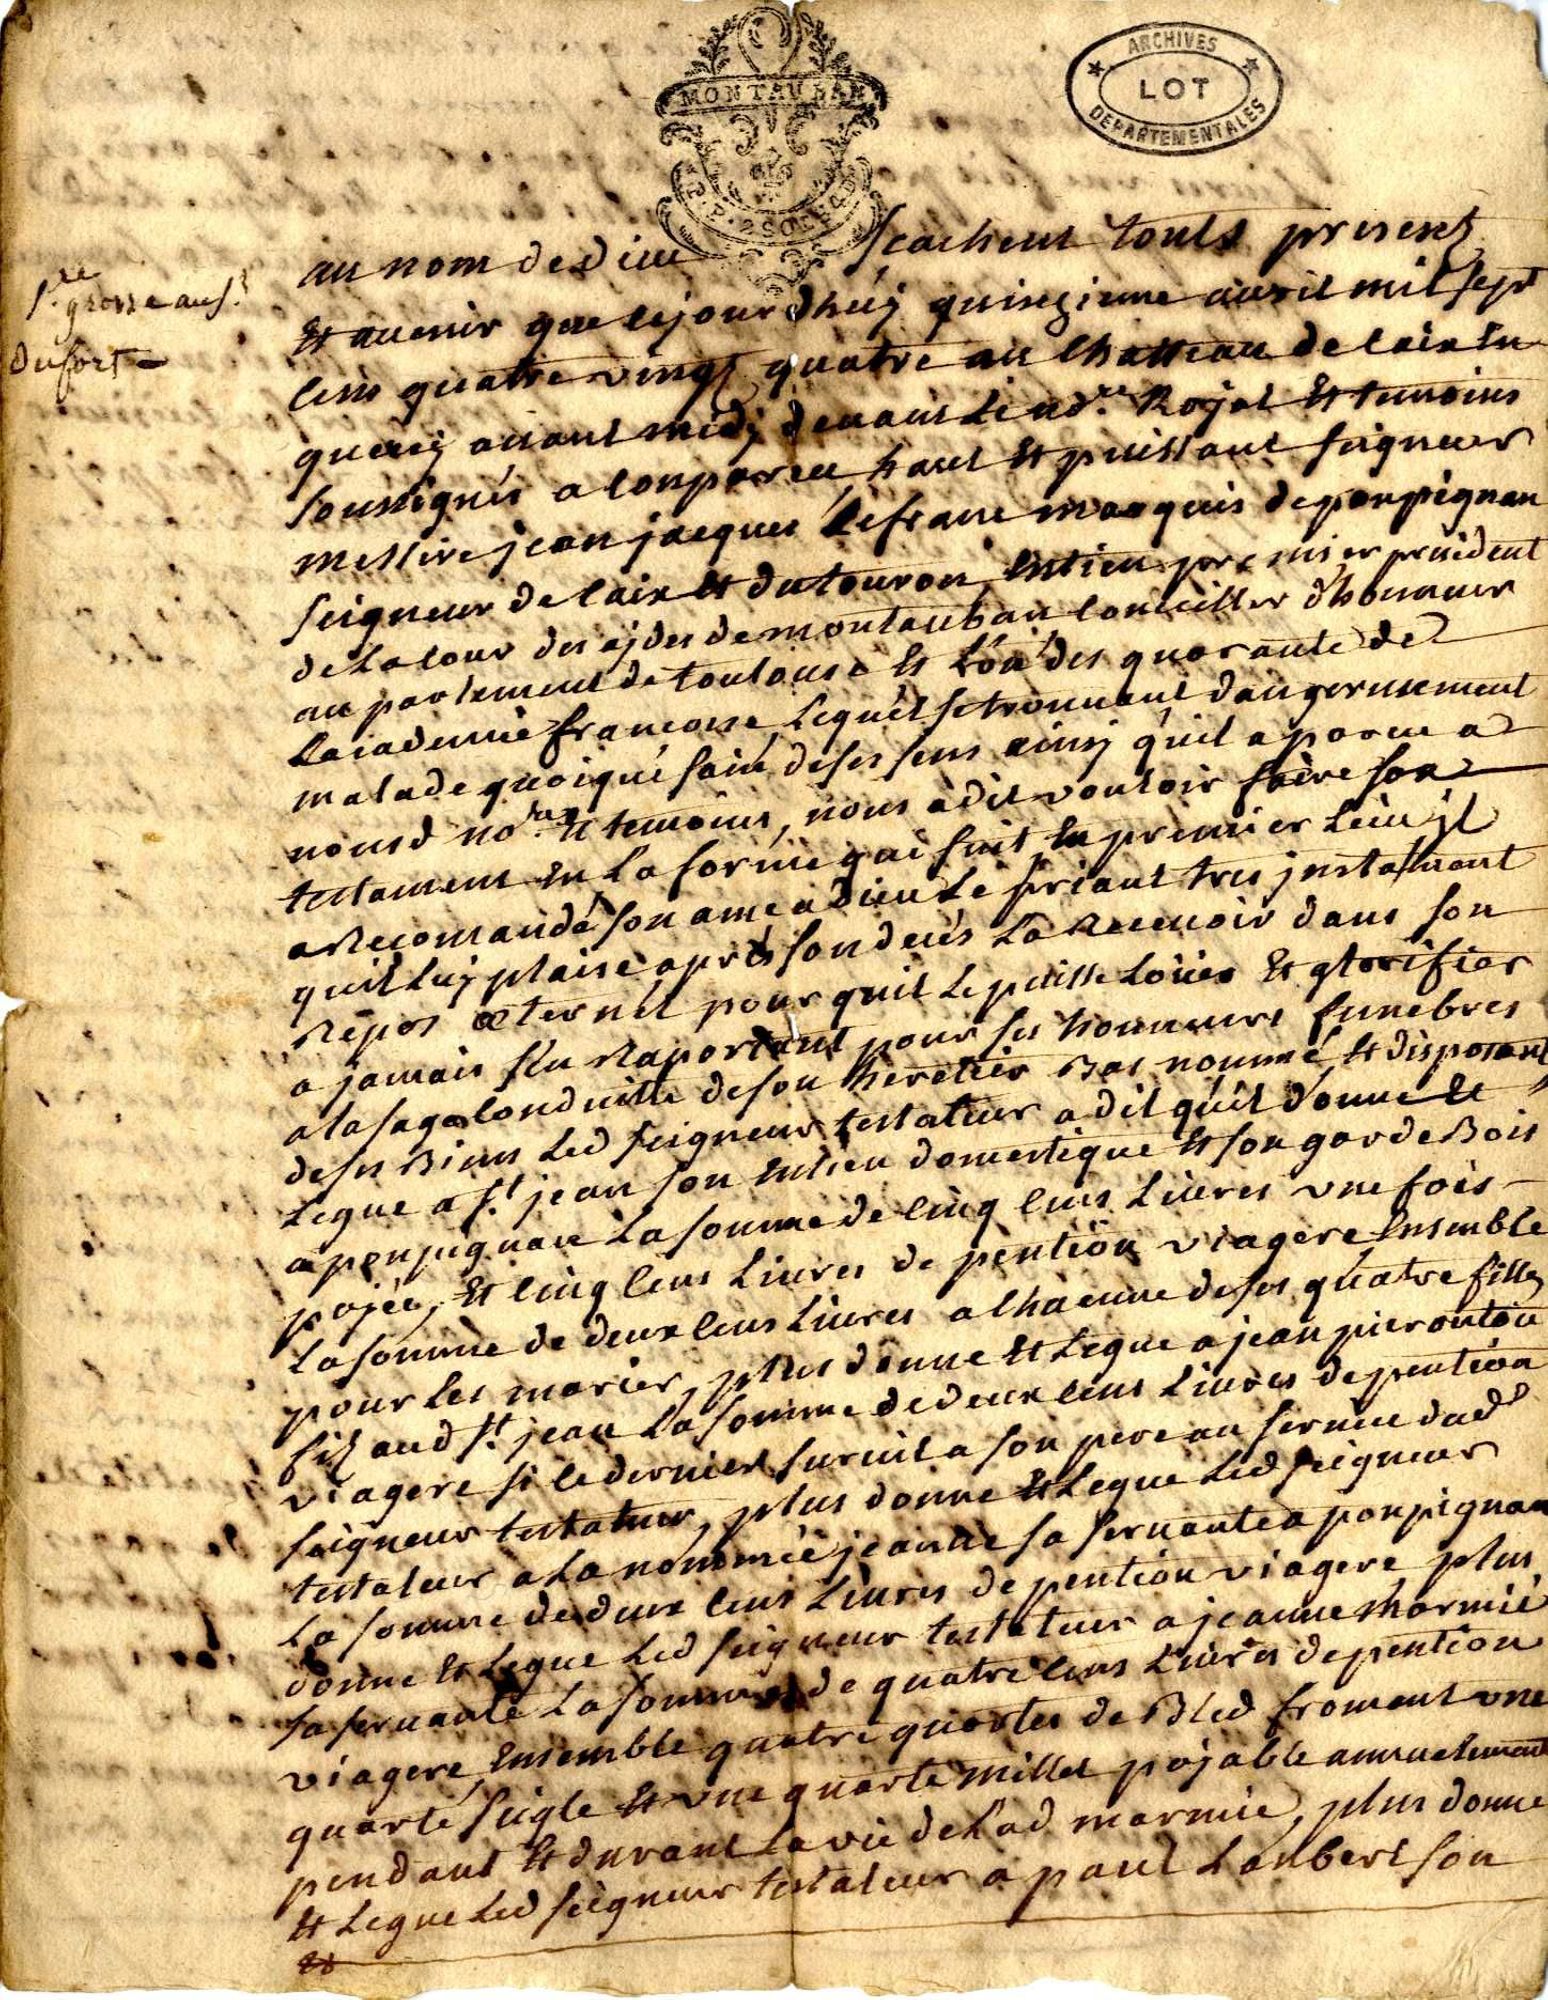 MONTAUBAN
ARCHIVES
LOT
DEPARTEMENTALES
au nom de dieu scachent touts presents
grosse au sr
Dufort
Et avenir que cejourdhuy quinzieme avril mil sept
cens quatre vingt quatre au chatteau de caix en
quercy avant midy devant le nore Royal et temoins
soussignés a conpareu haut et puissant seigneur
messire jean jacques Lefranc marquis de ponpignan
seigneur de caix et du touron entien premier president
de la cour des aydes de montauban conseiller d'honneur
au parlement de toulouse et l'un des quarante de
Lacademie francoise Lequel se trouvant dangereusement
malade quoique sain de ses sens ainsy qu'il a pareu a
nousd nore et temoins, nous a dit vouloir faire son
testament en La forme qui suit En premier Lieu jl
a Recomandé son ame a Dieu Le priant tres jnstament
quil Luy plaise apres son deces La Recevoir dans son
Repos œternel pour quil Le puisse Loüer et glorifier
a jamais s'en Raportant pour ses honneurs funebres
a la sage conduitte de son heretier Bas nommé et disposant
de ses Biens Led seigneur testateur a dit qu'il donne et
Legue a st jean son entien domestique et son garde Bois
a ponpignan La somme de cinq cens Livres une fois
payée, et cinq cens Livres de pention viagere Ensemble
La somme de deux cens Livres a chacune de ses quatre filles
pour Les marier, plus donne et Legue a jean pierontou
fils aud st jean La somme de deux cens Livres de pention
viagere si ce dernier survit a son pere au service dud
seigneur testateur, plus donne et Legue Led seigneur
testateur a La nommée jeanne sa servante a ponpignan
La somme de deux cens Livres de pention viagere plus
donne et Legue Led seigneur testateur a jeanne marmié
sa servante La somme de quatre cens Livres de pention
viagere Ensemble quatre quartes de Bled froment une
quarte seigle et une quarte millet payable annuelement
pendant et durant La vie de Lad marmié, plus donne
et Legue Led seigneur testateur a paul Lanbert son